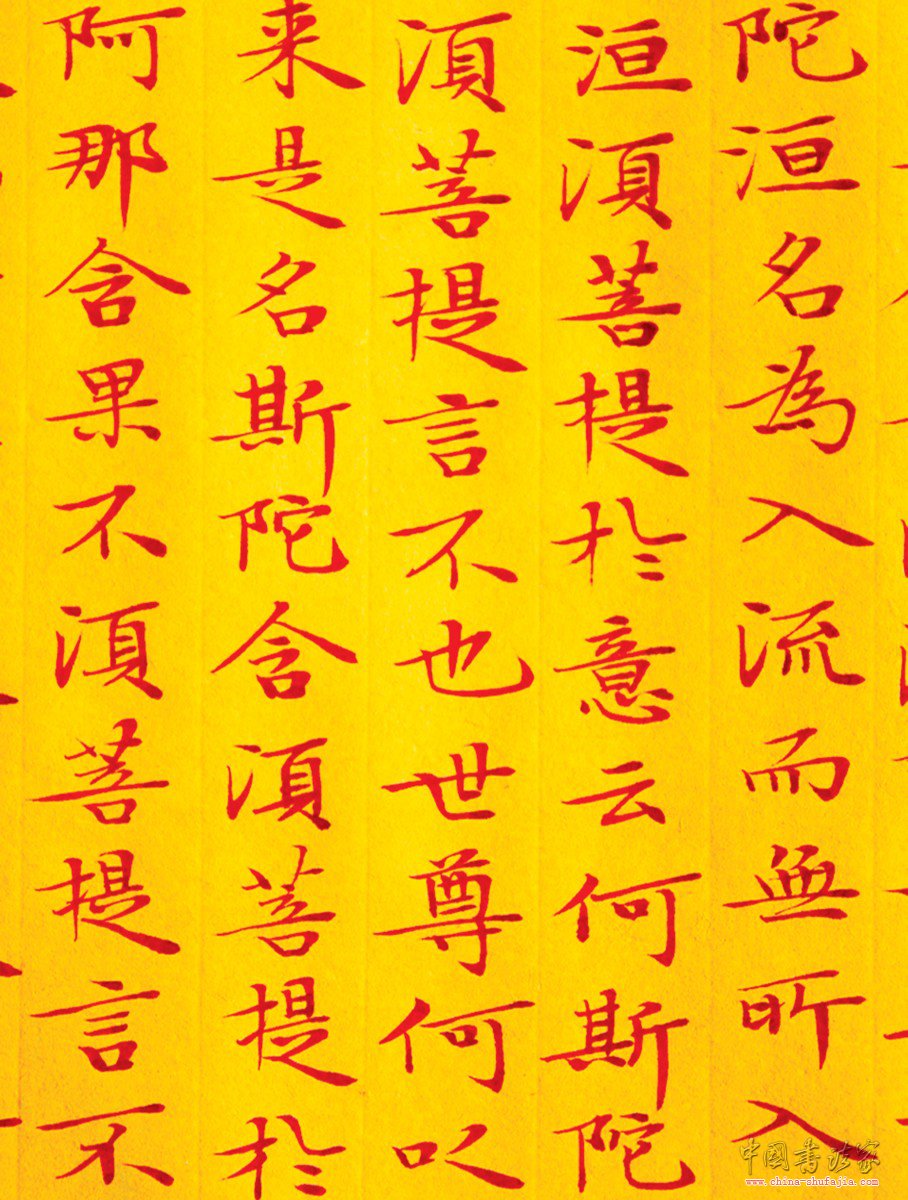 陀洹名為入流而無所入
洹湏菩提於意云何斯陀
湏菩提言不也世尊何以
来是名斯陀含湏菩提於
阿那含果不湏菩提言不
中國書法家
www.china-shufajia.com